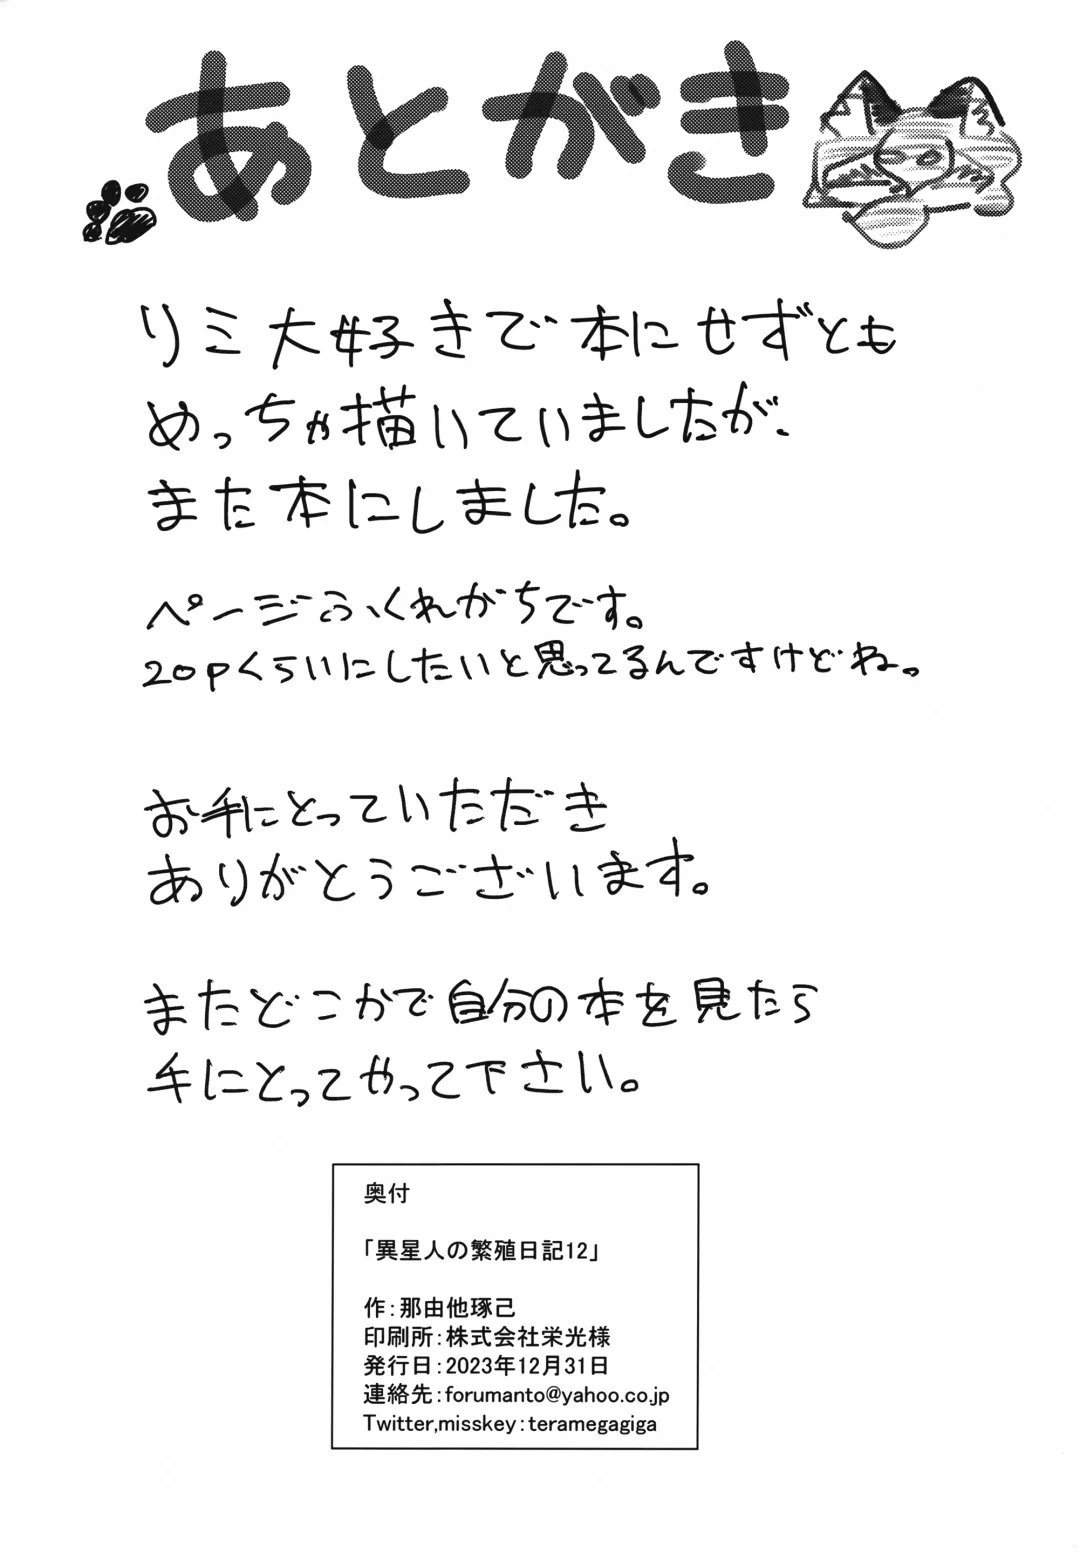 あとがき
リミ大好きで本にせずとも
めっちゃ描いていましたが、
また本にしました。
ページふくれがちです。
20pくらいにしたいと思ってるんですけどね。
お手にとっていただき
ありがとうございます。
またどこかで自分の本を見たら
手にとってやって下さい。
奥付
「異星人の繁殖日記12」
作：那由他琢己
印刷所：株式会社栄光様
発行日：2023年12月31日
連絡先：forumanto@yahoo.co.jp
Twitter,misskey：teramegagiga